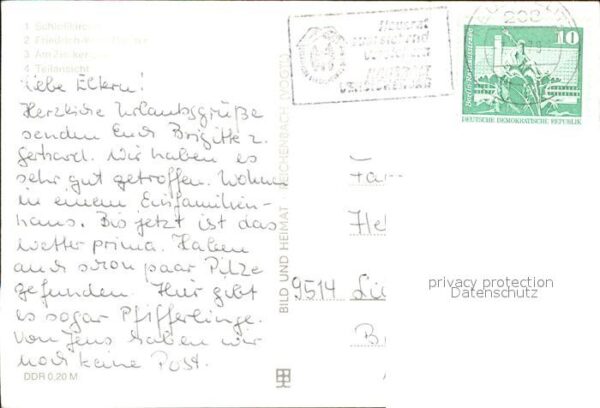 1 Schloßkirche
2 Friedrich-Wolf-Theater
3 Am Zierker See
4 Teilansicht
Liebe Eltern!
Herzliche Urlaubsgrüße
senden Euch Brigitte u.
Gerhard. Wir haben es
sehr gut getroffen. Wohnen
in einem Einfamilien-
haus. Bis jetzt ist das
Wetter prima. Haben
auch schon paar Pilze
gefunden. Hier gibt
es sogar Pfifferlinge.
Von Jens haben wir
noch keine Post.
DDR 0,20 M
BILD UND HEIMAT REICHENBACH (VOGTL)
208
10
DEUTSCHE DEMOKRATISCHE REPUBLIK
Fam
He
9514
privacy protection
Datenschutz